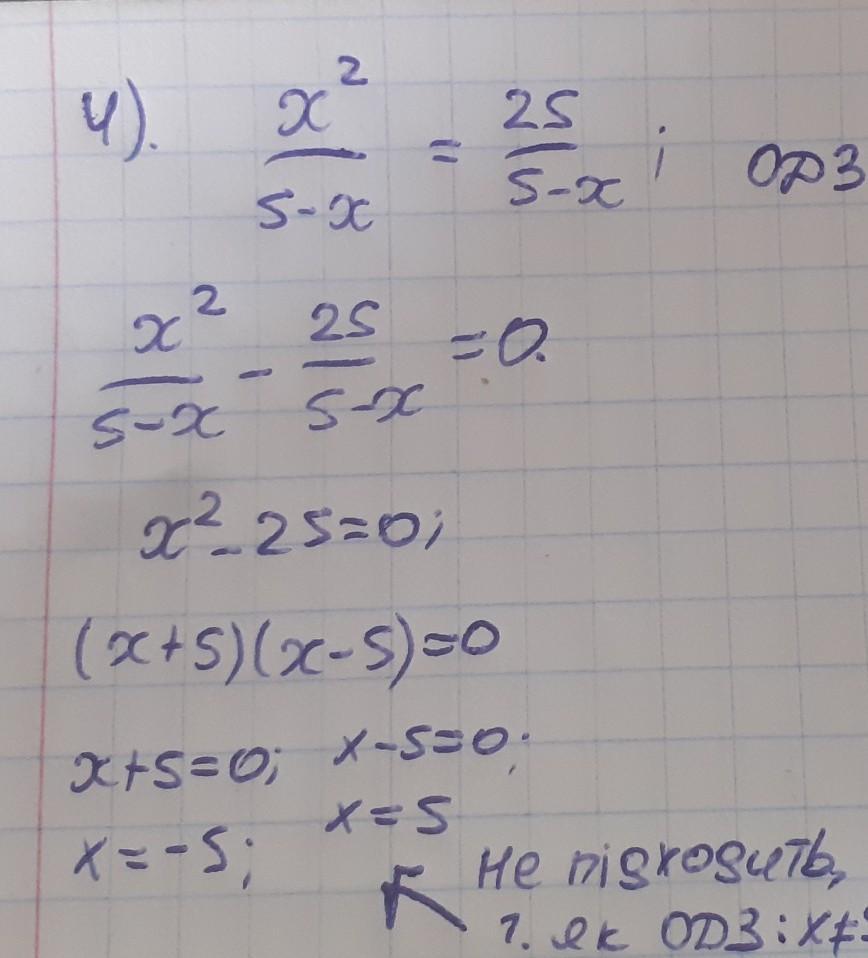 4). x²/(5-x) = 25/(5-x); ОДЗ
x²/(5-x) - 25/(5-x) = 0.
x² - 25 = 0;
(x+5)(x-5)=0
x+5=0; x-5=0;
x=-5; x=5
не підходить,
т. як ОДЗ: x≠5